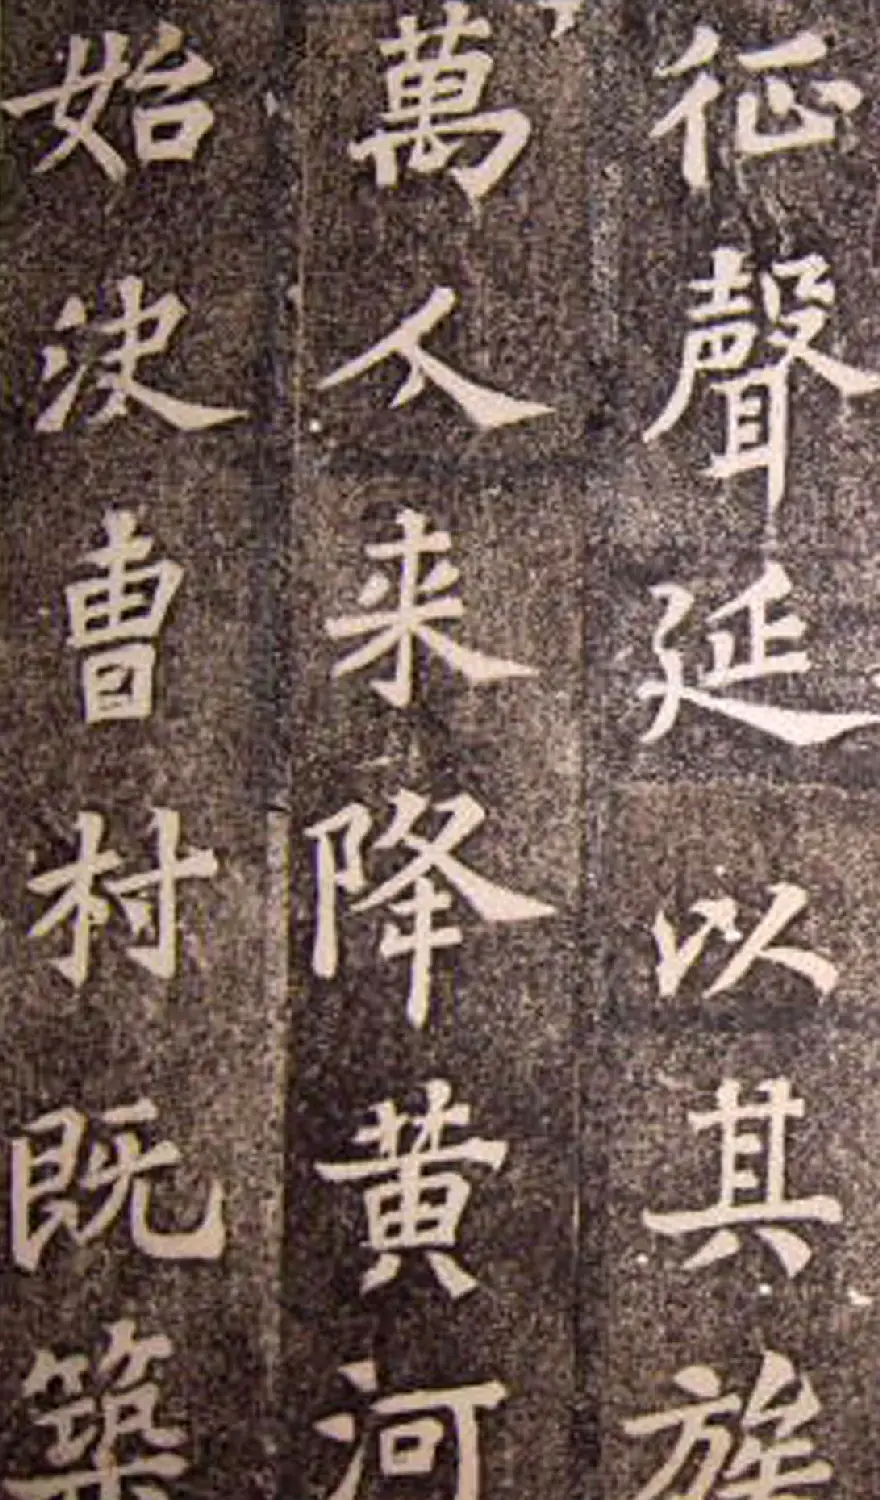 征聲延以其族
萬人来降黄河
始決曹村既築